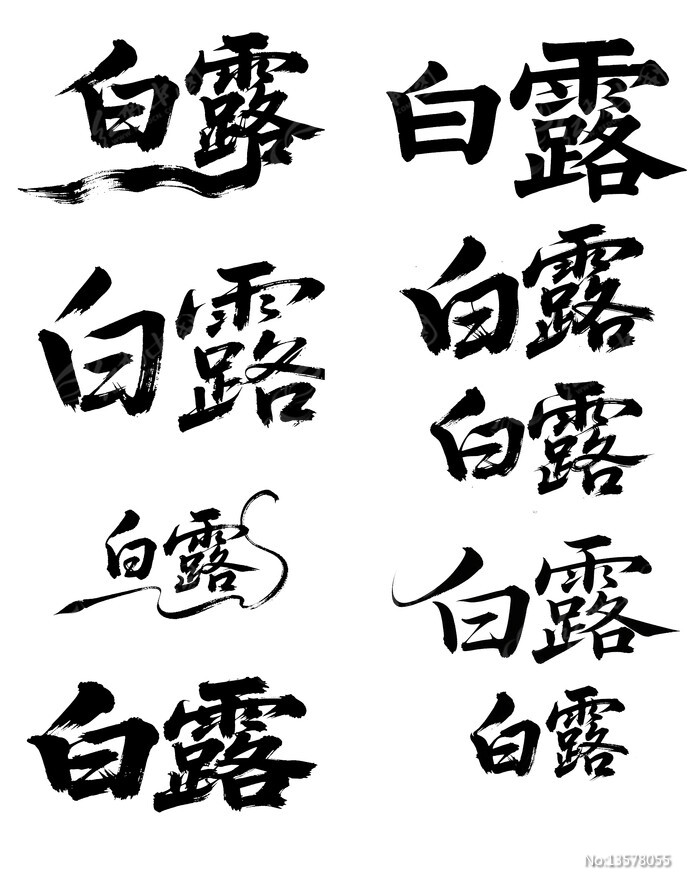 白露 白露
白露 白露
白露
白露 白露
白露 白露
No:13578055